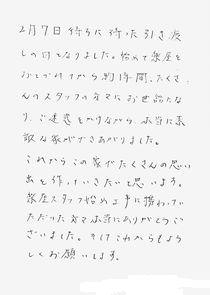 2月7日待ちに待った引き渡
しの日となりました。始めて葵屋を
おとづれてから約1時間、たくさ
んのスタッフの方々にお世話にな
り、ご迷惑をかけながら、本当に素
敵な家ができあがりました。
これからこの家でたくさんの思い
出を作っていきたいと思います。
葵屋スタッフ始め工事に携わっていた
だいた方々本当にありがとうご
ざいました。そしてこれからもよろ
しくお願いします。